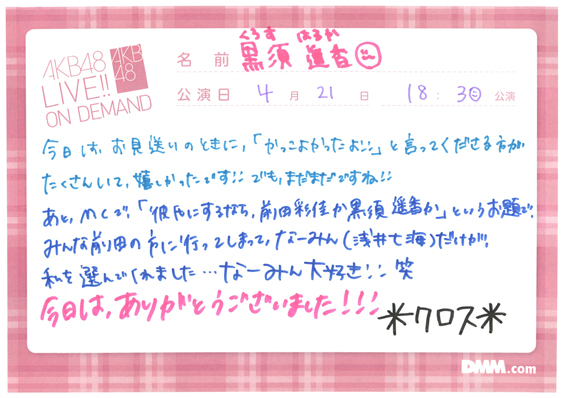 AKB48
LIVE!!
ON DEMAND
AKB
48
くろす はるか
名前 黒須 遥香
公演日 4月21日 18:30公演
今日は、お見送りのときに、「かっこよかったよ!!」と言ってくださる方が
たくさんいて、嬉しかったです!! でも、まだまだですね!!
あと、MCで、「彼氏にするなら、前田彩佳か黒須遥香か」というお題で、
みんな前田の方に行ってしまって、なーみん(浅井七海)だけが、
私を選んでくれました…なーみん大好き!! 笑
今日は、ありがとうございました!!!
*クロス*
DMM.com